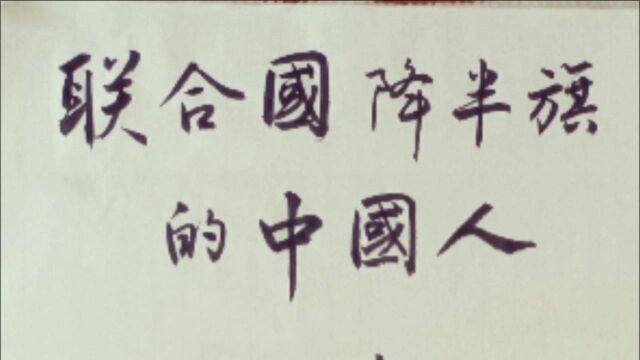 联合國降半旗
的中國人